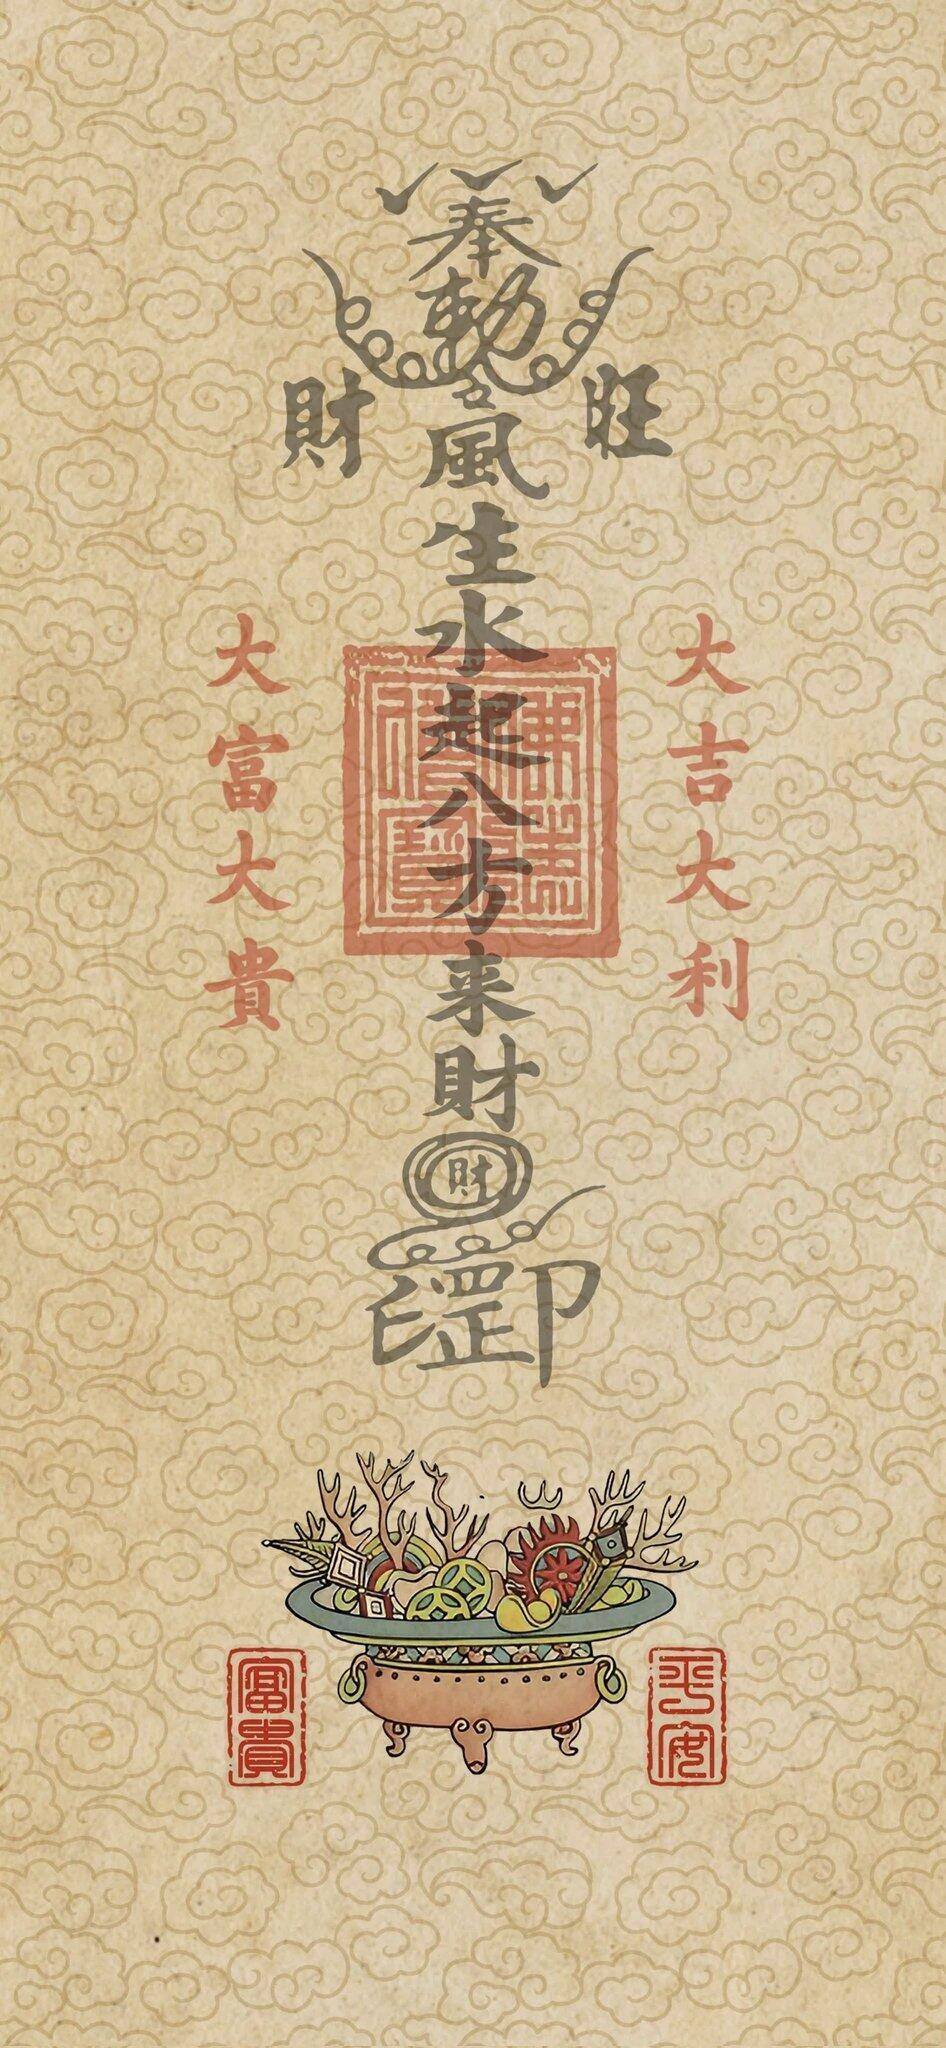 奉
勅令
旺財
風生水起八方来財
財
大吉大利
大富大貴
平安
富貴